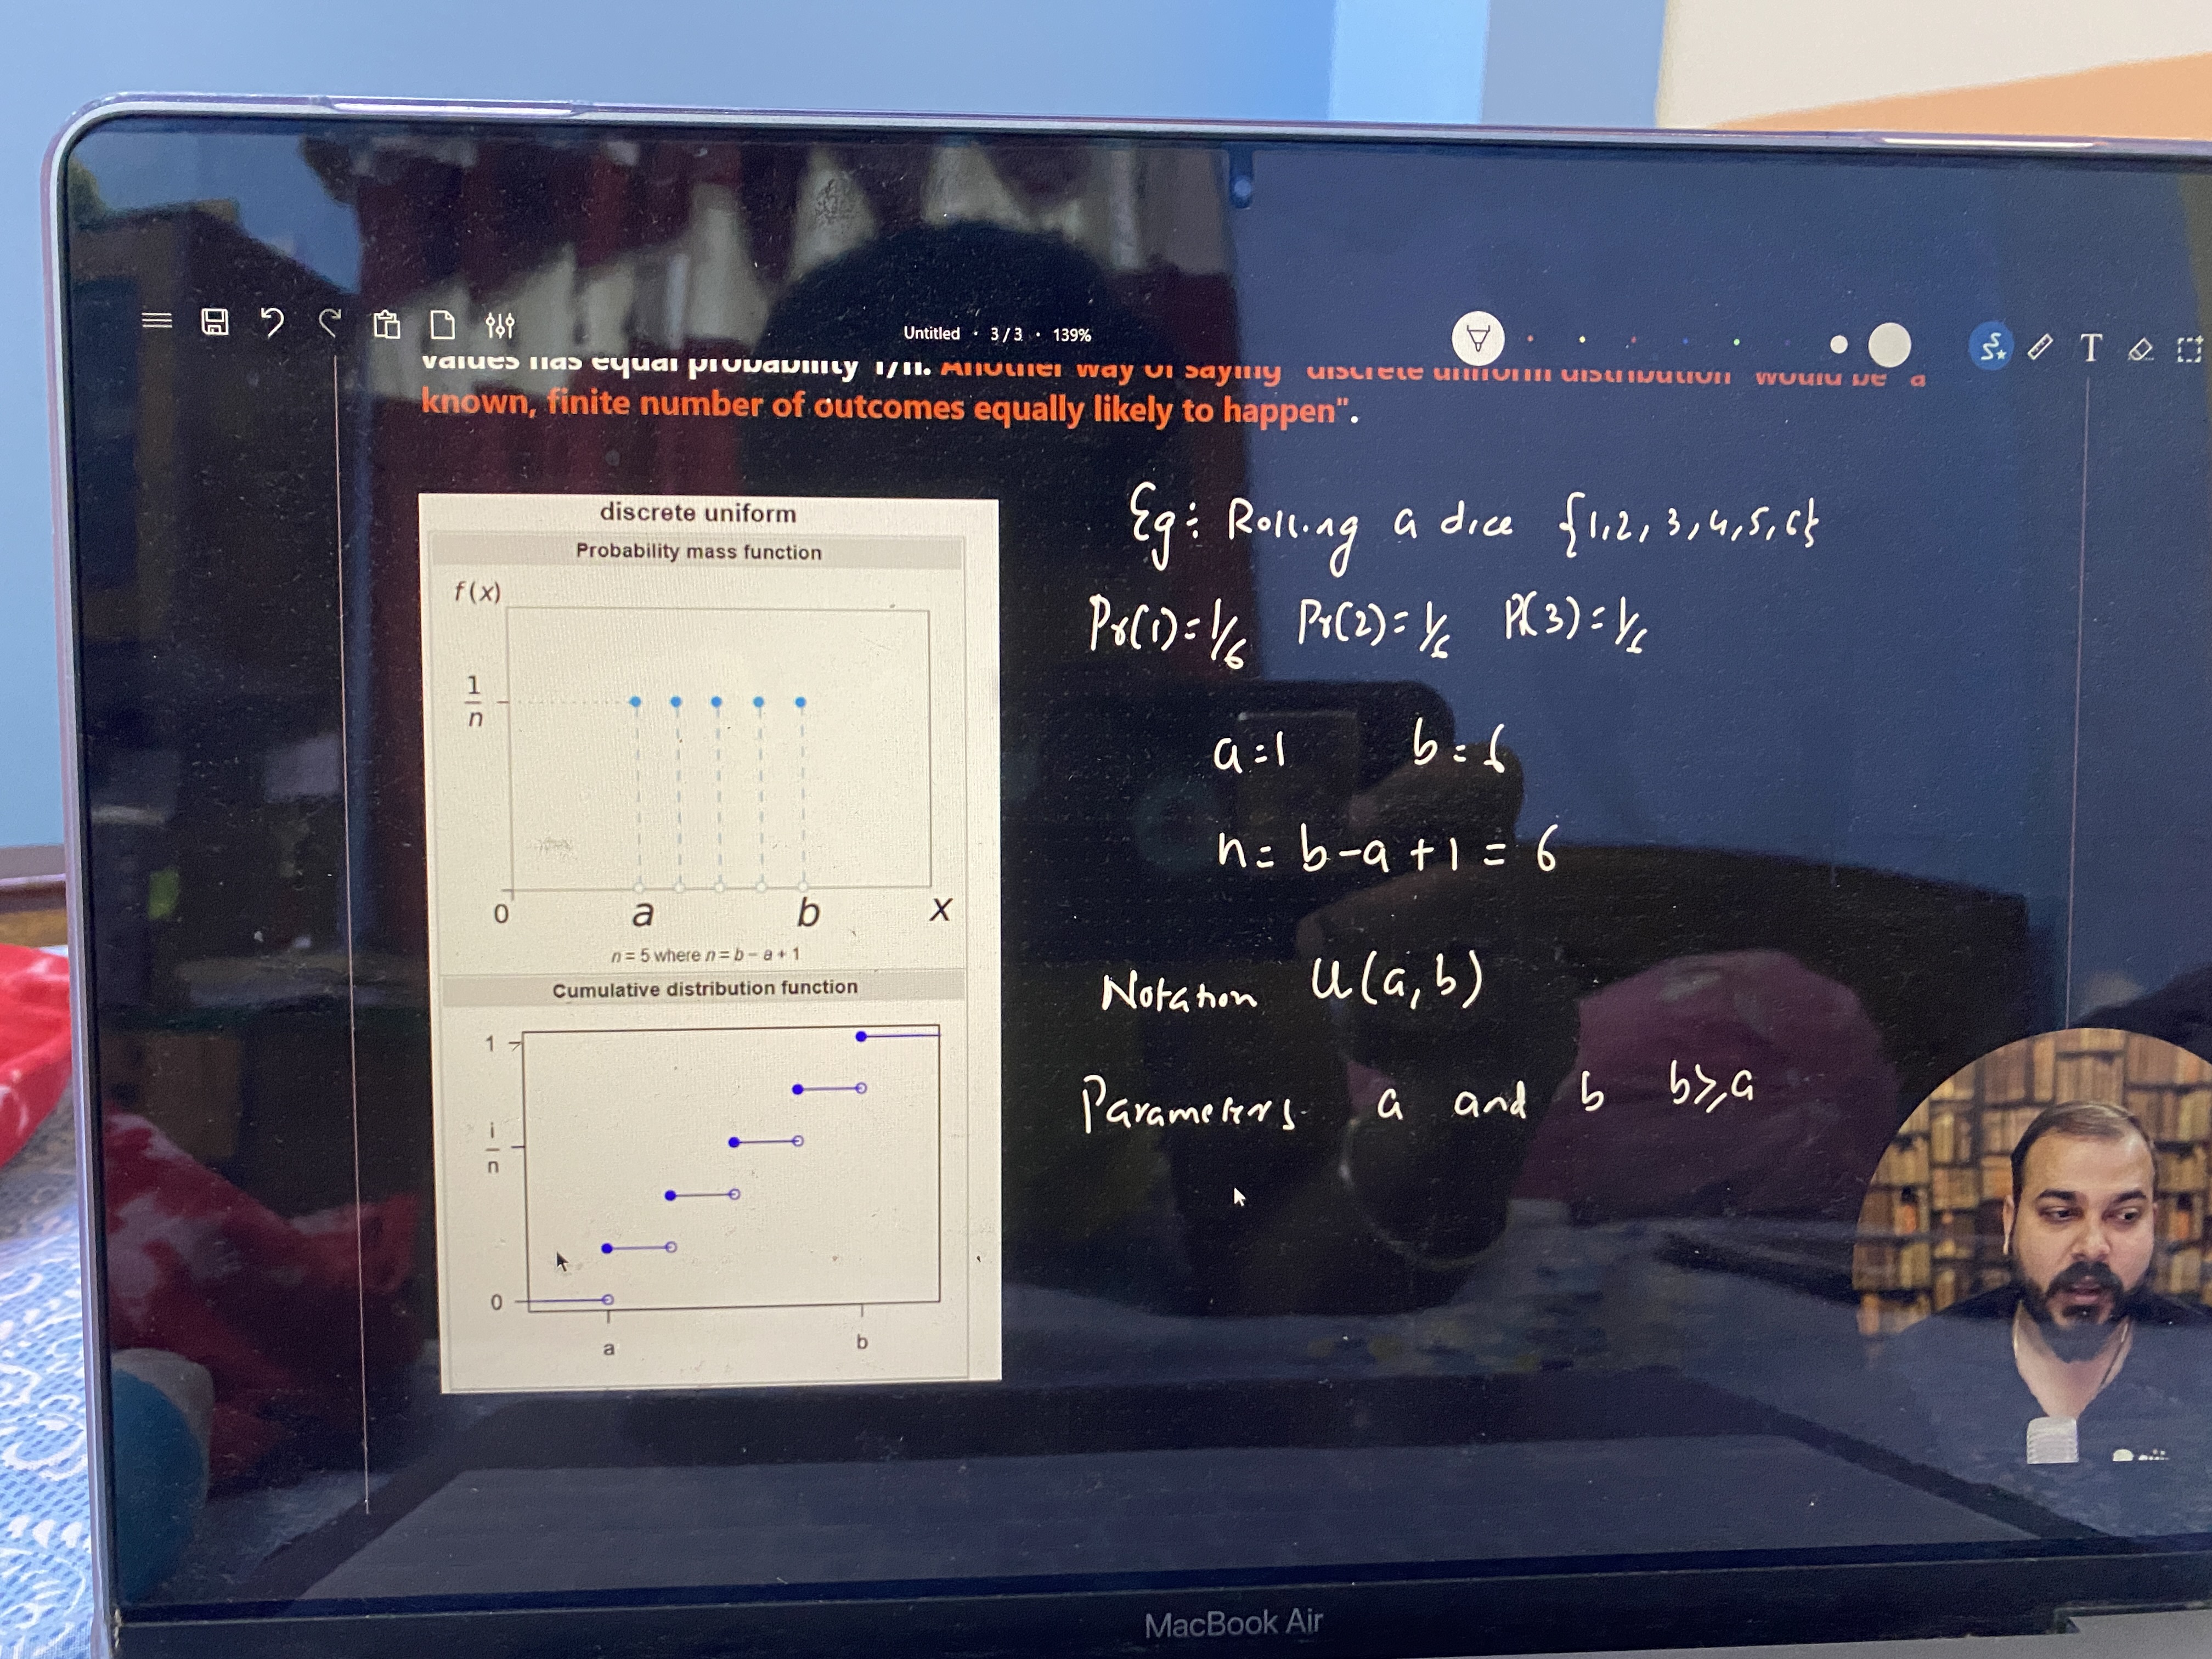 Untitled · 3 / 3 · 139%
values has equal probability 1/n. Another way of saying "discrete uniform distribution" would be "a
known, finite number of outcomes equally likely to happen".
discrete uniform
Probability mass function
f(x)
1
n
0 a b x
n = 5 where n = b − a + 1
Cumulative distribution function
1
i
n
0
a b
Eg: Rolling a dice {1,2,3,4,5,6}
Pr(1)=1/6 Pr(2)=1/6 P(3)=1/6
a=1 b=6
n= b-a+1 = 6
Notation U(a,b)
Parameters a and b b≥a
T
MacBook Air